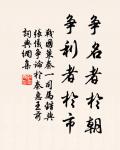 爭名者於朝
爭利者於市
戰國策秦一司馬錯與
張儀爭論於秦惠王前
詞典網集